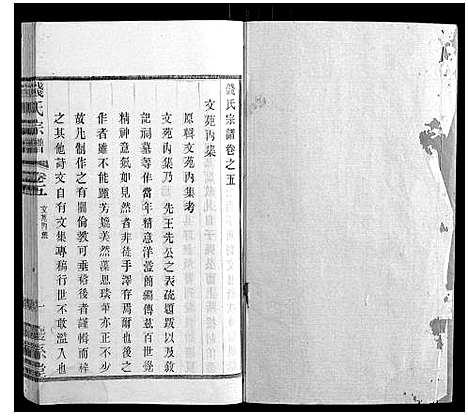 錢氏宗譜卷之五
文苑內集
原輯文苑內集考
文苑內集乃 先王先公之表疏題跋以及敘
記祠墓等作當年精意洋溢簡編傳茲百世覺
精神意氣如見然者非徒手澤存焉爾也後之
作者雖不能踵芳嫓美然藻思璞華亦正不少
故凡制作之有關倫敎可垂裕後者謹輯而梓
之其他詩文自有文集專稿行世不敢濫入也
錢氏宗譜
卷五
文苑內集
一